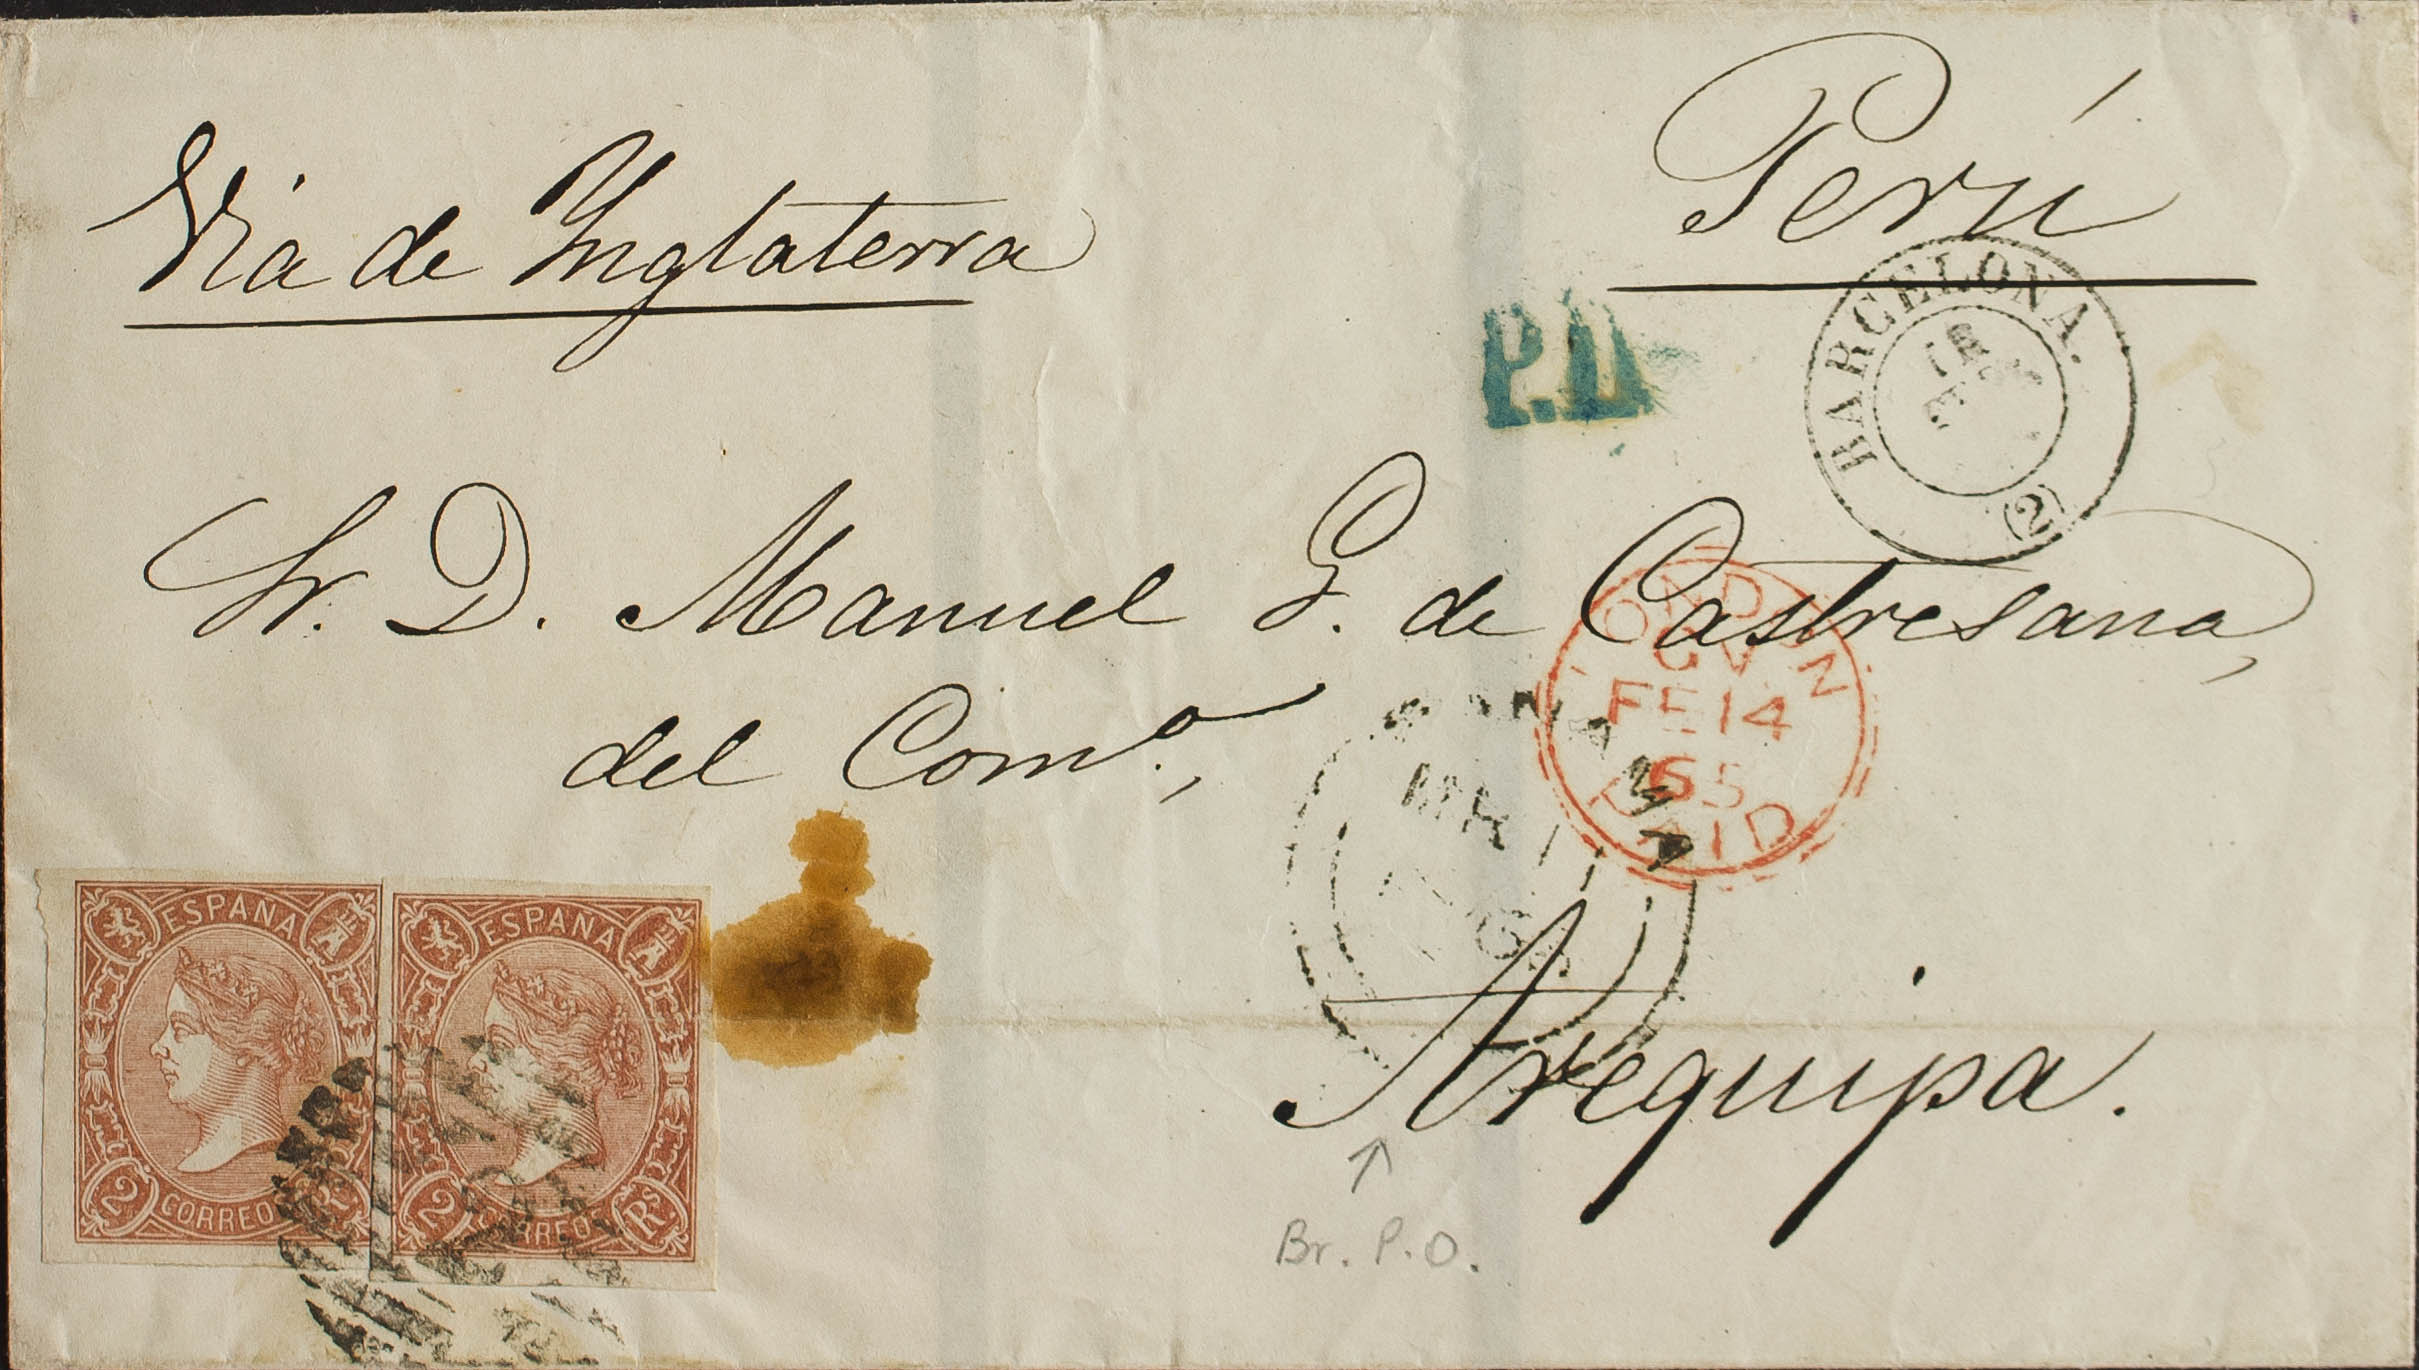 Perú
Via de Inglaterra
P.D.
BARCELONA.
2
Sr. D. Manuel G. de Castresana,
LONDON
CV
FE 14
65
PAID
del Comº.,
PANAMA
MR
Arequipa.
Br. P.O.
ESPAÑA
2 CORREOS Rs
ESPAÑA
2 CORREOS Rs